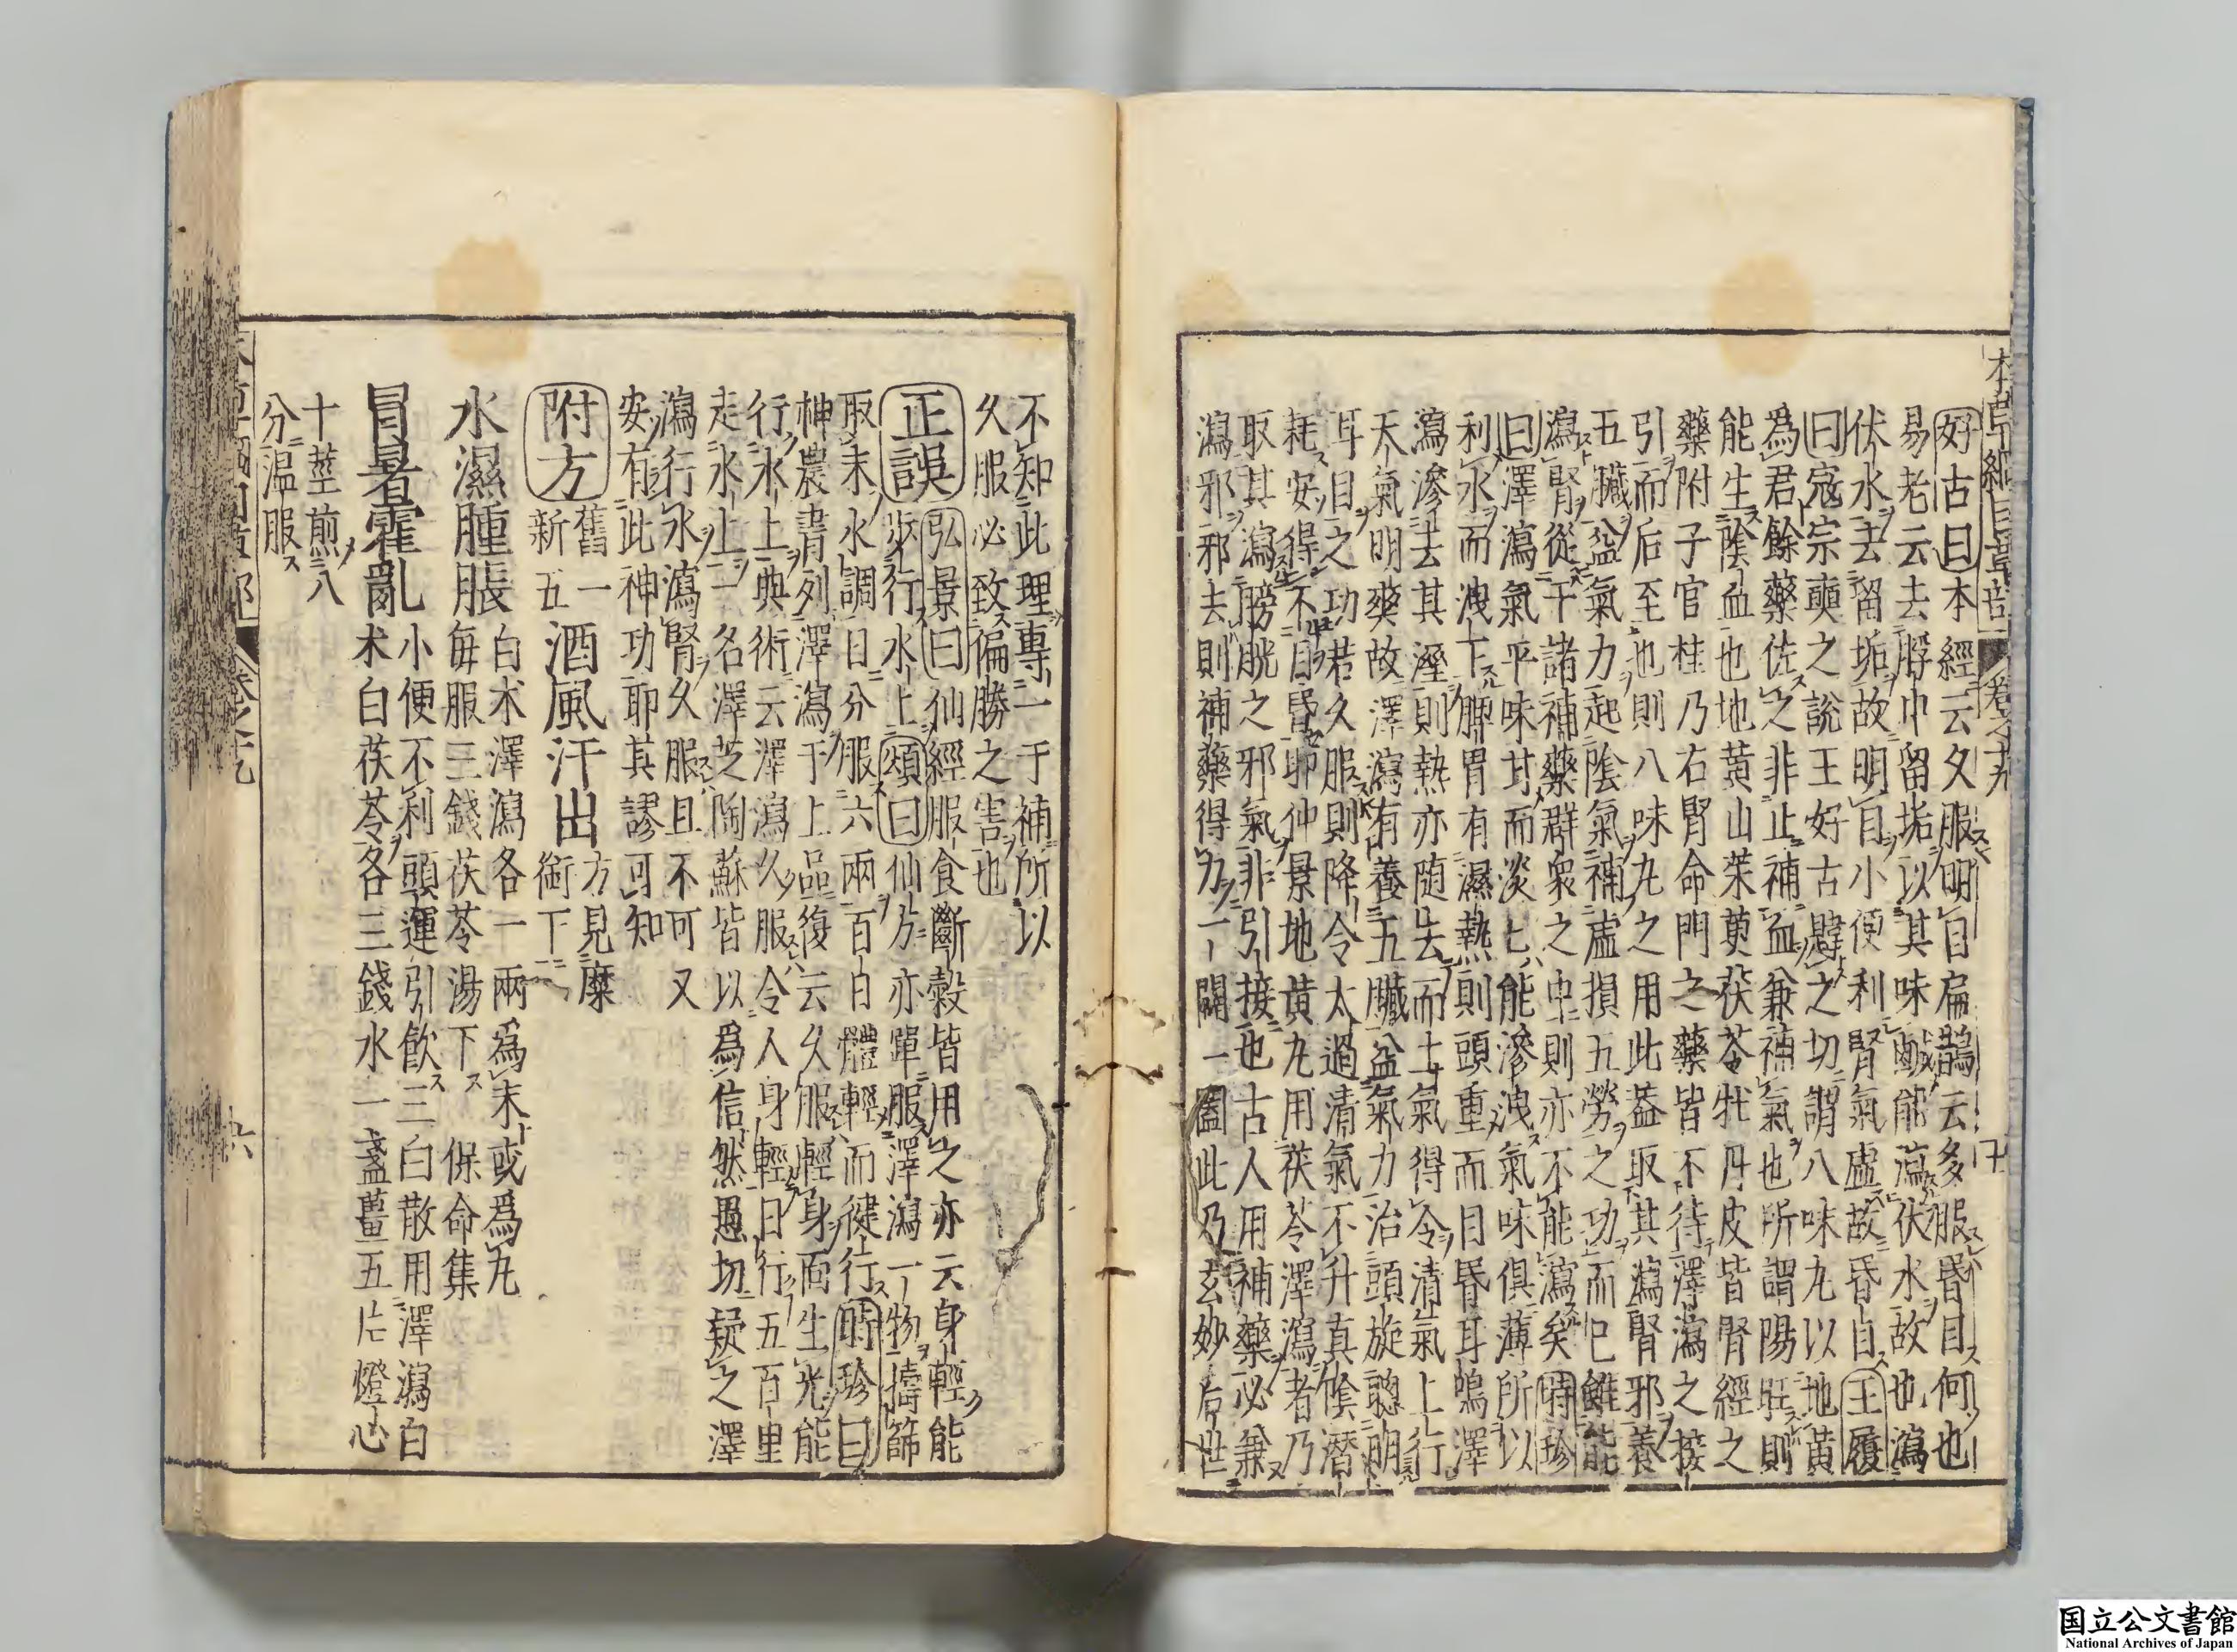 本草綱目草部 卷之十九
好古曰本經云久服明目扁鵲云多服昏目何也
易老云去脬中留垢以其味鹹能瀉伏水故也瀉
伏水去留垢故明目小便利腎氣虛故昏目王履
曰寇宗奭之說王好古韙之切謂八味丸以地黃
為君餘藥佐之非止補血兼補氣也所謂陽旺則
能生陰血也地黃山茱萸茯苓牡丹皮皆腎經之
藥附子官桂乃右腎命門之藥皆不待澤瀉之接
引而后至也則八味丸之用此蓋取其瀉腎邪養
五臟益氣力起陰氣補虛損五勞之功而已雖能
瀉腎從于諸補藥群衆之中則亦不能瀉矣時珍
曰澤瀉氣平味甘而淡淡能滲泄氣味俱薄所以
利水而洩下脾胃有濕熱則頭重而目昏耳鳴澤
瀉滲去其溼則熱亦随去而土氣得令清氣上行
天氣明爽故澤瀉有養五臟益氣力治頭旋聰明
耳目之功若久服則降令太過清氣不升真陰潛
耗安得不目昏耶仲景地黃丸用茯苓澤瀉者乃
取其瀉膀胱之邪氣非引接也古人用補藥必兼
瀉邪邪去則補藥得力一闢一闔此乃玄妙后世
不知此理專一于補所以
久服必致偏勝之害也
正誤 弘景曰仙經服食斷穀皆用之亦云身輕能
步行水上頌曰仙方亦單服澤瀉一物擣篩
取末水調日分服六兩百日體輕而健行時珍曰
神農書列澤瀉于上品復云久服輕身面生光能
行水上典術云澤瀉久服令人身輕日行五百里
走水上一名澤芝陶蘇皆以爲信然愚切疑之澤
瀉行水瀉腎久服且不可又
安有此神功耶其謬可知
附方 舊一
新五 酒風汗出 方見麋
銜下
水濕腫脹 白朮澤瀉各一兩爲末或爲丸
每服三錢茯苓湯下 保命集
冒暑霍亂 小便不利頭運引飲三白散用澤瀉白
朮白茯苓各三錢水一盞薑五片燈心
十莖煎八
分温服
六
国立公文書館
National Archives of Japan